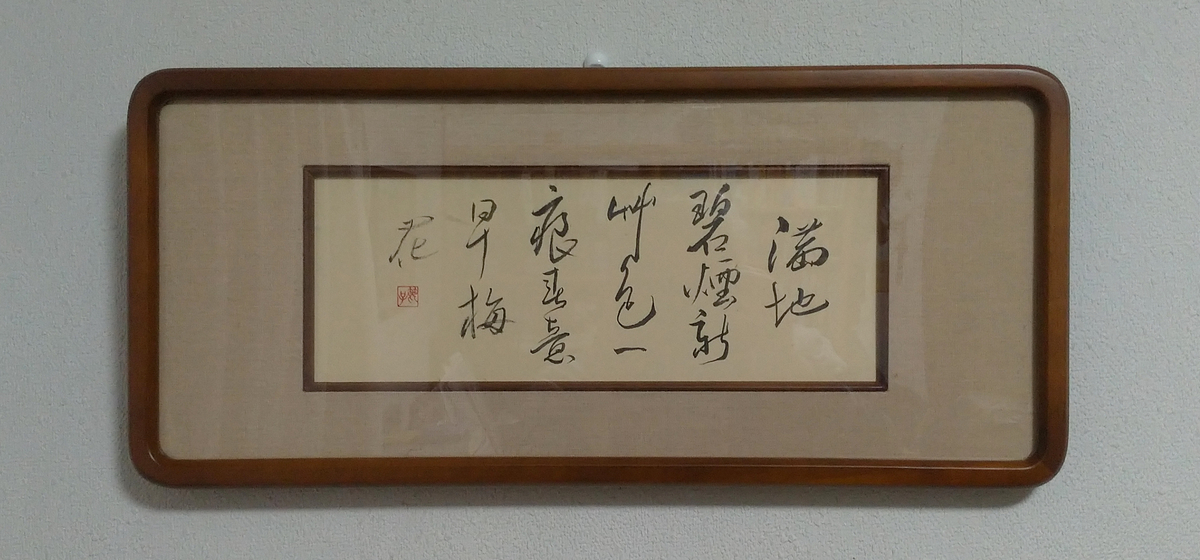 満地
碧煙新
艸色一
痕春意
早梅
花